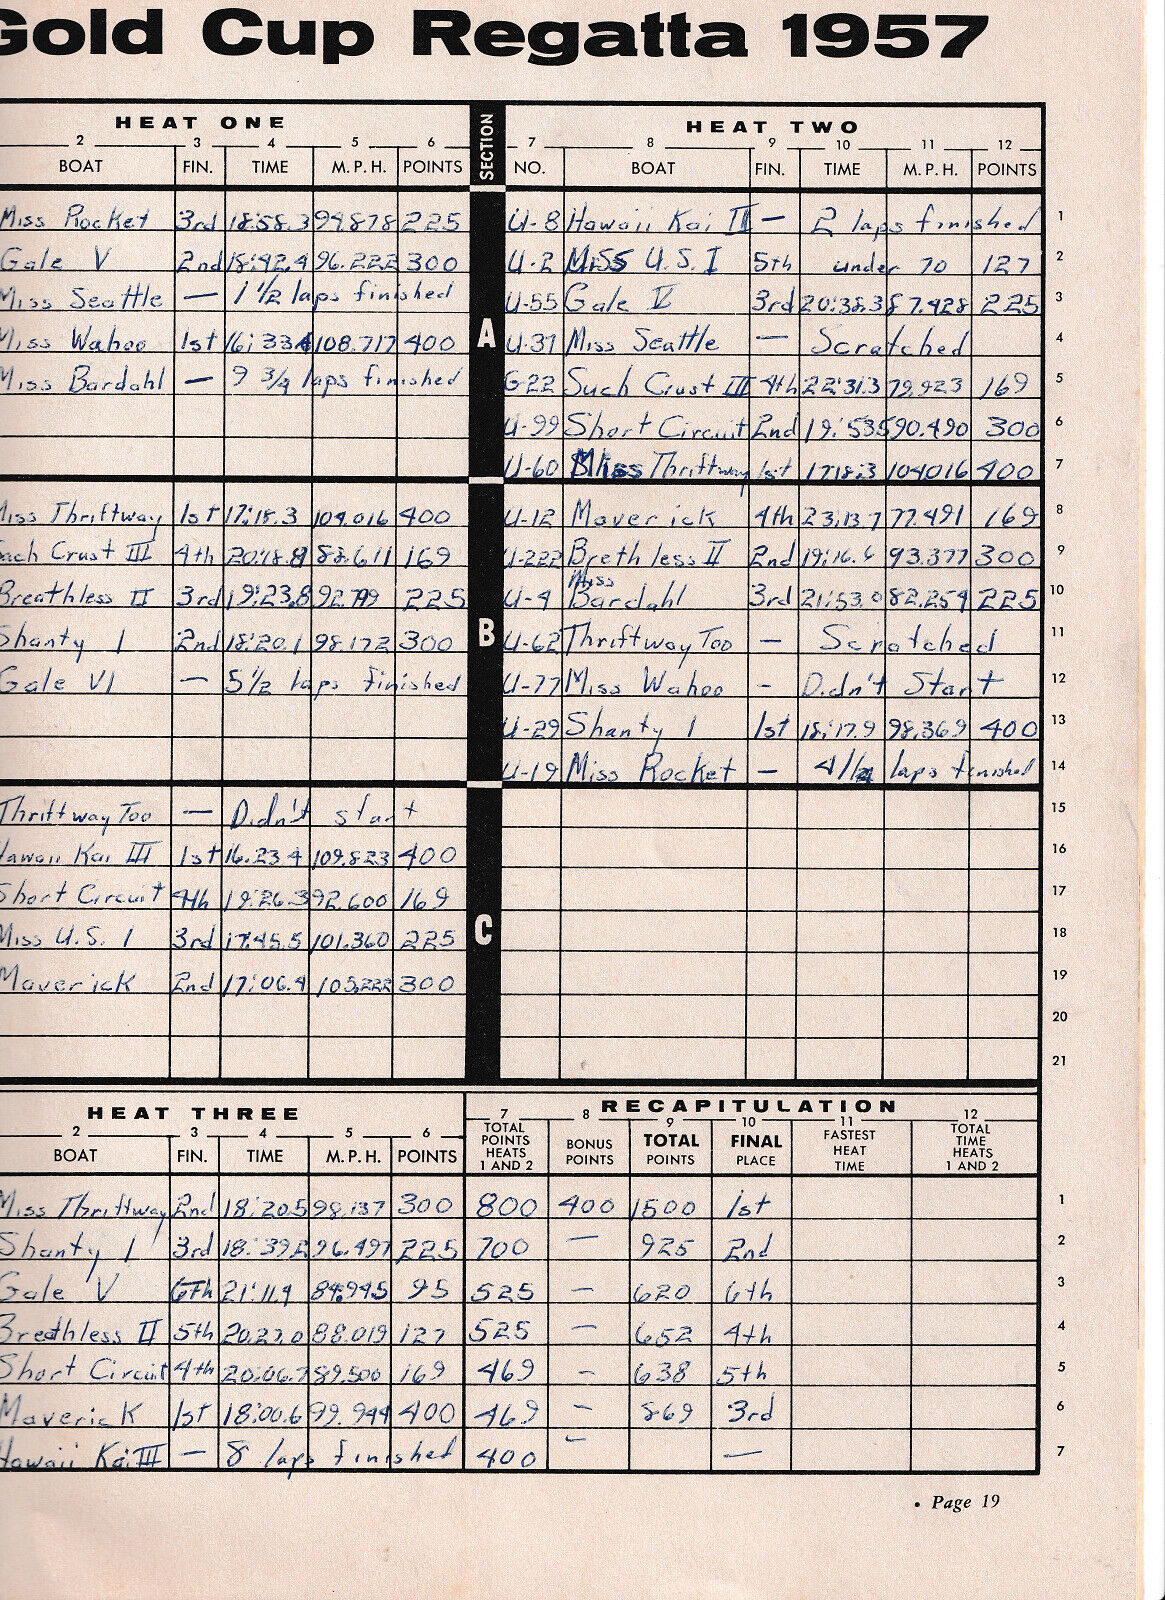 Gold Cup Regatta 1957
HEAT ONE SECTION HEAT TWO
2 3 4 5 6 7 8 9 10 11 12
BOAT FIN. TIME M.P.H. POINTS NO. BOAT FIN. TIME M.P.H. POINTS
Miss Rocket 3rd 18:58.3 94.878 225 U-8 Hawaii Kai III — 2 laps finished 1
Gale V 2nd 18:42.4 96.222 300 U-2 Miss U.S. I 5th under 70 127 2
Miss Seattle — 1 1/2 laps finished U-55 Gale V 3rd 20:38.3 87.428 225 3
Miss Wahoo 1st 16:33.4 108.717 400 A U-37 Miss Seattle — Scratched 4
Miss Bardahl — 9 3/4 laps finished G-22 Such Crust III 4th 22:31.3 79.923 169 5
U-99 Short Circuit 2nd 19:53.5 90.490 300 6
U-60 Miss Thriftway 1st 17:18.3 104.016 400 7
Miss Thriftway 1st 17:18.3 104.016 400 U-12 Maverick 4th 23:13.7 77.491 169 8
Such Crust III 4th 20:18.8 88.611 169 U-222 Brethless II 2nd 19:16.6 93.377 300 9
Breathless II 3rd 19:23.8 92.799 225 U-4 Miss Bardahl 3rd 21:53.0 82.254 225 10
Shanty 1 2nd 18:20.1 98.172 300 B U-62 Thriftway Too — Scratched 11
Gale VI — 5 1/2 laps finished U-77 Miss Wahoo - Didn't Start 12
U-29 Shanty 1 1st 18:17.9 98.369 400 13
U-19 Miss Rocket — 4 1/2 laps finished 14
Thriftway Too — Didn't start 15
Hawaii Kai III 1st 16:23.4 109.823 400 16
Short Circuit 4th 19:26.3 92.600 169 17
Miss U.S. 1 3rd 17:45.5 101.360 225 C 18
Maverick 2nd 17:06.4 105.222 300 19
20
21
HEAT THREE RECAPITULATION
2 3 4 5 6 7 8 9 10 11 12
BOAT FIN. TIME M.P.H. POINTS TOTAL POINTS HEATS 1 AND 2 BONUS POINTS TOTAL POINTS FINAL PLACE FASTEST HEAT TIME TOTAL TIME HEATS 1 AND 2
Miss Thriftway 2nd 18:20.5 98.137 300 800 400 1500 1st 1
Shanty 1 3rd 18:39.2 96.497 225 700 — 925 2nd 2
Gale V 6th 21:11.4 84.945 95 525 — 620 6th 3
Breathless II 5th 20:27.0 88.019 127 525 — 652 4th 4
Short Circuit 4th 20:06.7 89.500 169 469 - 638 5th 5
Maverick 1st 18:00.6 99.944 400 469 - 869 3rd 6
Hawaii Kai III — 8 laps finished 400 - — 7
• Page 19